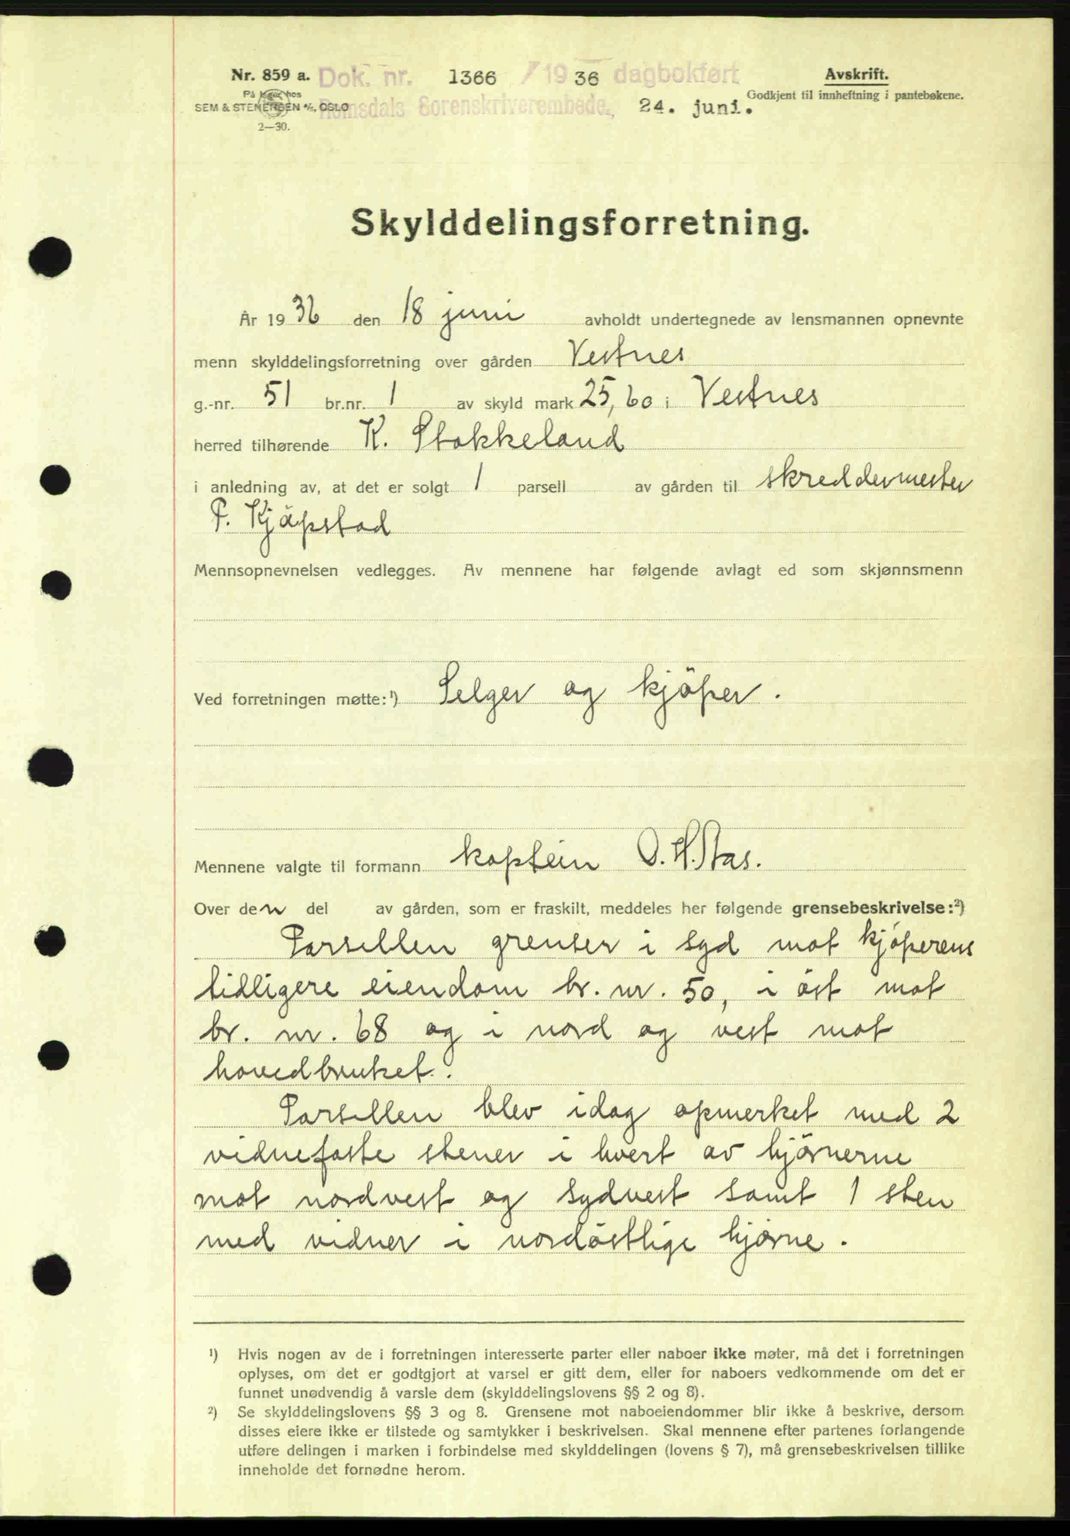 Nr. 859 a. Dok. nr. 1366 /1936 dagbokført Avskrift.
På lager hos Godkjent til innheftning i pantebøkene.
SEM & STENERSEN A/S. OSLO Romsdals Sorenskriverembede, 24. juni.
2—30.
Skylddelingsforretning.
År 1936 den 18 juni avholdt undertegnede av lensmannen opnevnte
menn skylddelingsforretning over gården Vestnes
g.-nr. 51 br.nr. 1 av skyld mark 25,60 i Vestnes
herred tilhørende K. Stokkeland
i anledning av, at det er solgt 1 parsell av gården til skreddermester
P. Kjöpstad
Mennsopnevnelsen vedlegges. Av mennene har følgende avlagt ed som skjønnsmenn
Ved forretningen møtte:¹) Selger og kjöper.
Mennene valgte til formann kaptein O. H. Aas.
Over den del av gården, som er fraskilt, meddeles her følgende grensebeskrivelse:²)
Parsellen grenser i syd mot kjöperens
tidligere eiendom br. nr. 50, i öst mot
br. nr. 68 og i nord og vest mot
hovedbruket.
Parsellen blev idag opmerket med 2
vidnefaste stener i hvert av hjörnerne
mot nordvest og sydvest samt 1 sten
med vidner i nordöstlige hjörne.
¹) Hvis nogen av de i forretningen interesserte parter eller naboer ikke møter, må det i forretningen
oplyses, om det er godtgjort at varsel er gitt dem, eller for naboers vedkommende om det er
funnet unødvendig å varsle dem (skylddelingslovens §§ 2 og 8).
²) Se skylddelingslovens §§ 3 og 8. Grensene mot naboeiendommer blir ikke å beskrive, dersom
disses eiere ikke er tilstede og samtykker i beskrivelsen. Skal mennene efter partenes forlangende
utføre delingen i marken i forbindelse med skylddelingen (lovens § 7), må grensebeskrivelsen tillike
inneholde det fornødne herom.